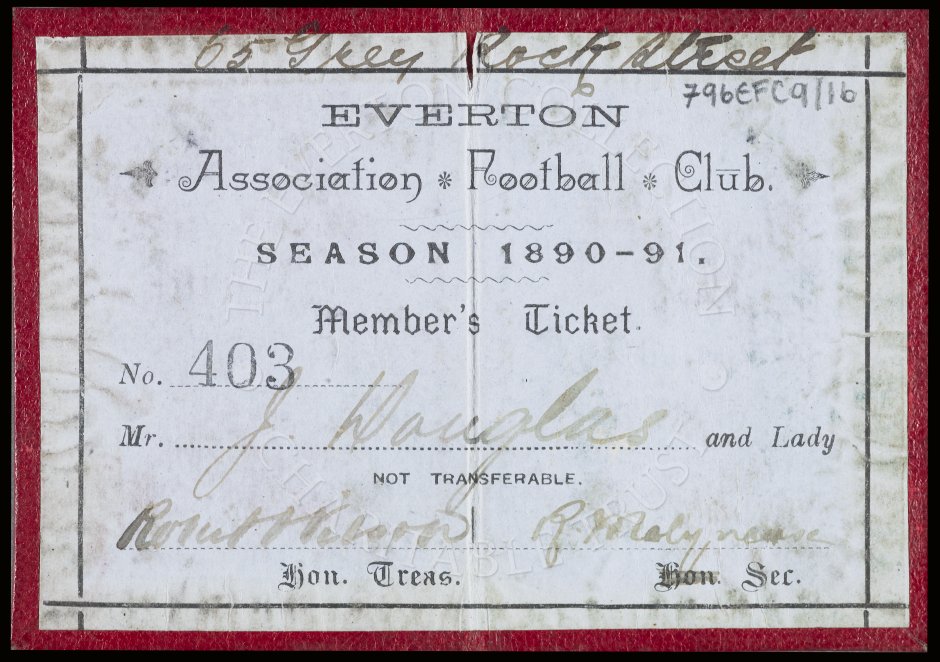 65 Grey Rock Street
796EFC9/16
EVERTON
Association * Football * Club.
SEASON 1890-91.
Member's Ticket.
No. 403
Mr. J. Douglas and Lady
NOT TRANSFERABLE.
Robert Wilson R. Molyneux
Hon. Treas. Hon. Sec.